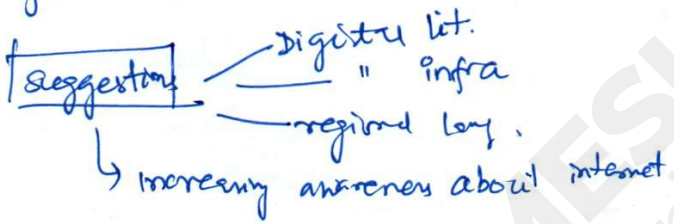 suggestions
Digital lit.
" infra
regional lang.
increasing awareness about internet